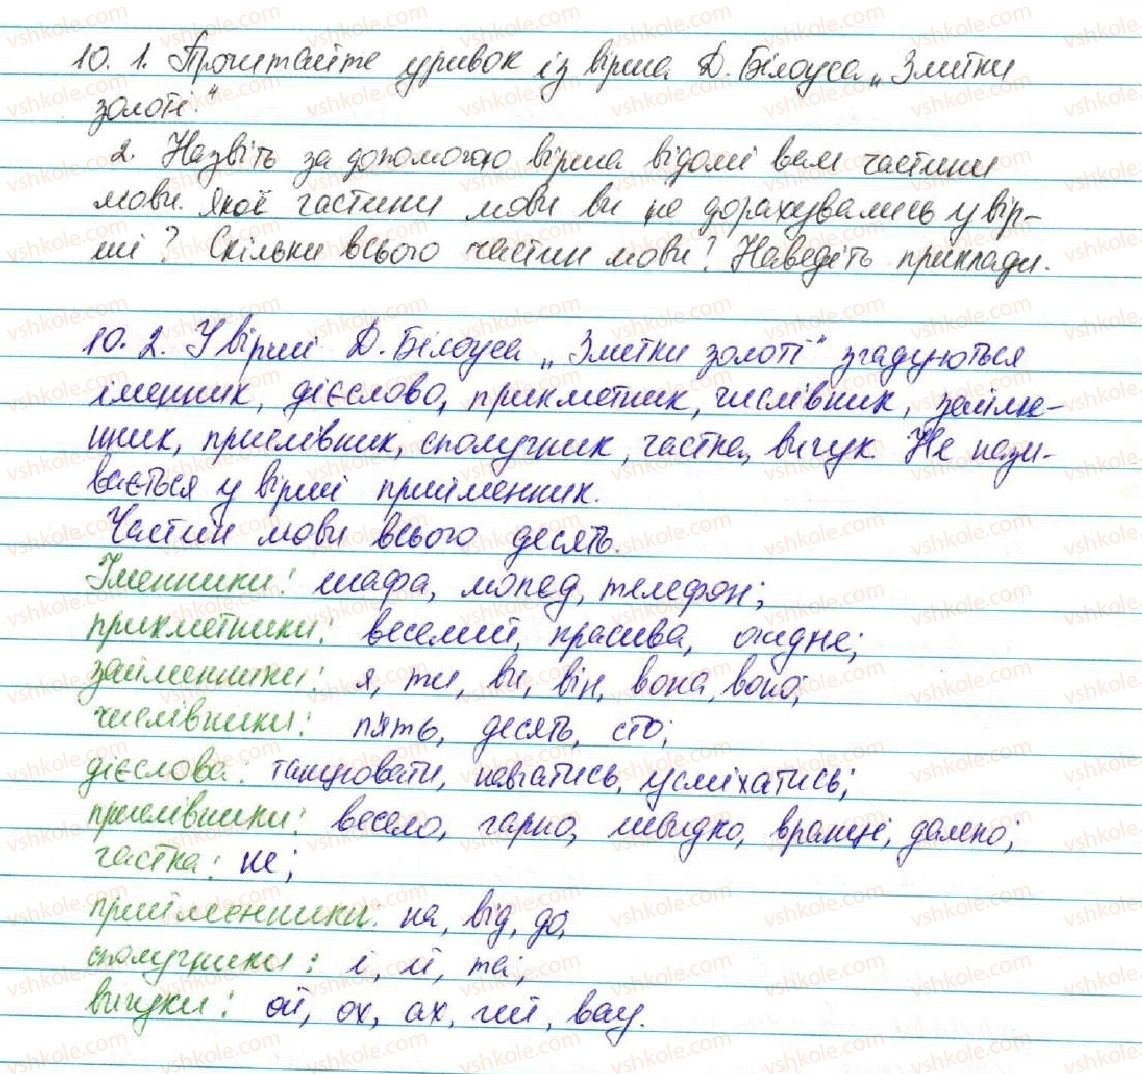 10. 1. Прочитайте уривок із вірша Д. Білоуса „Злитки
золоті."
2. Назвіть за допомогою вірша відомі вам частини
мови. Якої частини мови ви не дорахувались у вір-
ші? Скільки всього частин мови? Наведіть приклади.
10. 2. У вірші Д. Білоуса „Злитки золоті" згадуються
іменник, дієслово, прикметник, числівник, займе-
нник, прислівник, сполучник, частка, вигук. Не нази-
вається у вірші прийменник.
Частин мови всього десять.
Іменники: шафа, мопед, телефон;
прикметники: веселий, красива, жадне;
займенники: я, ти, ви, він, вона, воно;
числівники: п'ять, десять, сто;
дієслова: танцювати, навчатись, усміхатись;
прислівники: весело, гарно, швидко, вранці, далеко;
частка: не;
прийменники: на, від, до,
сполучники: і, й, та;
вигуки: ой, ох, ах, гей, вау.